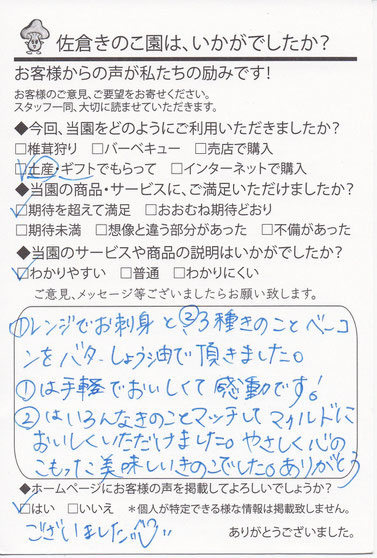 佐倉きのこ園は、いかがでしたか?
お客様からの声が私たちの励みです!
お客様のご意見、ご要望をお寄せください。
スタッフ一同、大切に読ませていただきます。
◆今回、当園をどのようにご利用いただきましたか?
□椎茸狩り □バーベキュー □売店で購入
□土産・ギフトでもらって □インターネットで購入
◆当園の商品・サービスに、ご満足いただけましたか?
□期待を超えて満足 □おおむね期待どおり
□期待未満 □想像と違う部分があった □不備があった
◆当園のサービスや商品の説明はいかがでしたか?
□わかりやすい □普通 □わかりにくい
ご意見、メッセージ等ございましたらお願い致します。
①レンジでお刺身と②3種きのことベーコ
ンをバターしょう油で頂きました。
①は手軽でおいしくて感動です!
②はいろんなきのことマッチしてマイルドに
おいしくいただけました。やさしく心の
こもった美味しいきのこでした。ありがとう
◆ホームページにお客様の声を掲載してよろしいでしょうか?
□はい □いいえ *個人が特定できる様な情報は掲載致しません。
ございました
ありがとうございました。